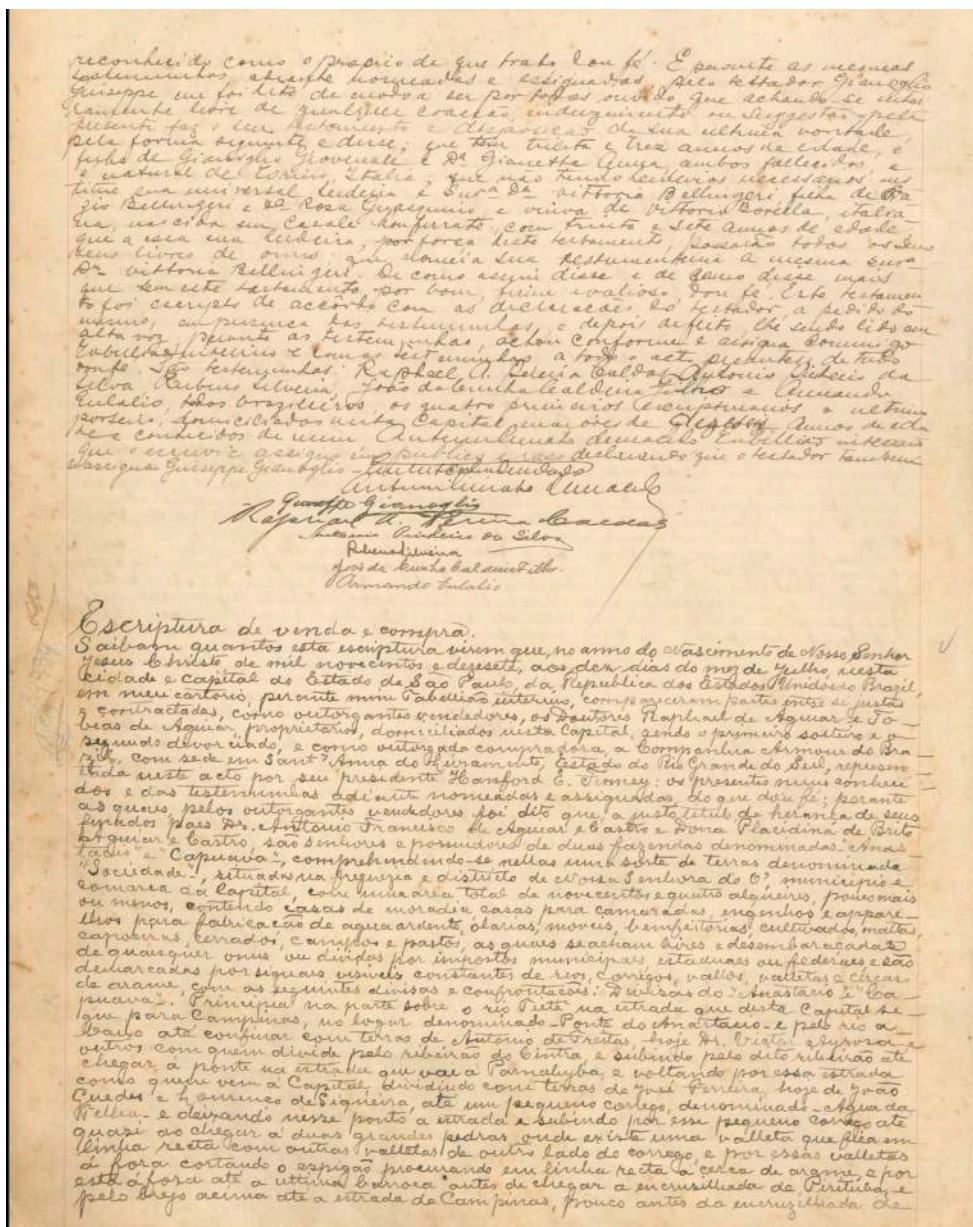 reconhecido como o proprio de que trato dou fé. E perante as mesmas
testemunhas, adiante nomeadas e assignadas, pelo testador Gianoglio
Giuseppe me foi dito de modo a ser por todas ouvido que achando-se intei
ramente livre de qualquer coacção, induzimento ou suggestão pela
presente faz o seu testamento e disposição de sua ultima vontade
pela forma seguinte e disse; que tem trinta e trez annos de edade, é
filho de Gianoglio Giovenale e Dª Gianetta Anna, ambos fallecidos e
é natural de Torino, Italia. que não tendo herdeiros necessarios ins
titue sua universal herdeira á Snrª Dª Vittoria Bellingeri filha de
gio Bellingeri e Dª Rosa e viuva de Vittorio Borella, italia
na, nascida em Casale Monferrato, com trinta e sete annos de edade
que a essa sua herdeira, por força deste testamento, passarão todos os seus
bens livres de onus; que nomeia sua testamenteira a mesma Snrª
Dª Vittoria Bellingeri. De como assim disse e de como disse mais
que tem este testamento por bom, firme e valioso dou fé. Este testamen
to foi escripto de accôrdo com as declarações do testador, a pedido do
mesmo, em presença das testemunhas, e depois de feito, lhe sendo lido em
alta voz perante as testemunhas, achou conforme e assigna commigo
Tabellião interino e com as testemunhas a todo o acto presentes de tudo
dou fé. São testemunhas: Raphael A. Pereira Caldas, Antonio Pinheiro da
Silva, Rubens Silveira, João da Cunha Caldeira Filho e Armando
Eulalio, todos brazileiros, os quatro primeiros escripturarios, o ultimo
porteiro, domiciliados nesta Capital, maiores de annos de eda
de e conhecidos de mim Tabellião interino
que o escrevi e assigno em publico e raso declarando que o testador tambem
assigna Giuseppe Gianoglio
Giuseppe Gianoglio
Raphael A. Pereira Caldas
Antonio Pinheiro da Silva
Rubens Silveira
João da Cunha Caldeira Filho
Armando Eulalio
Escriptura de venda e compra.
Saibam quantos esta escriptura virem que, no anno do Nascimento de Nosso Senhor
Jesus Christo, de mil novecentos e dezesete, aos dez dias do mez de Julho, nesta
cidade e Capital do Estado de São Paulo, da Republica dos Estados Unidos do Brazil,
em meu cartorio, perante mim Tabellião interino, compareceram partes entre si justas
e contractadas, como outorgantes vendedores, os Doutores Raphael de Aguiar e To-
bias de Aguiar, proprietarios, domiciliados nesta Capital, sendo o primeiro solteiro e o
segundo divorciado, e como outorgada compradora, a Companhia Armour do Bra
zil, com sede em Sant'Anna do Livramento, Estado do Rio Grande do Sul, represen
tada neste acto por seu presidente Hanford E. Finney: os presentes meus conheci
dos e das testemunhas adiante nomeadas e assignadas, do que dou fé; perante
as quaes, pelos outorgantes vendedores foi dito que, a justo titulo de herança de seus
finados paes Dr. Antonio Francisco de Aguiar e Castro e Dona Placidina de Brito
Aguiar e Castro, são senhores e possuidores de duas fazendas denominadas "Anas-
tacio" e "Capuava", comprehendendo-se nellas uma sorte de terras denominada
"Sociedade", situadas na freguezia e districto de Nossa Senhora do O', municipio e
comarca da Capital, com uma area total de novecentos e quatro alqueires, pouco mais
ou menos, contendo casas de moradia casas para camaradas, engenhos e appare-
lhos para fabricação de aguaardente, olarias, moveis, bemfeitorias, cultivados, mattas,
capoeiras, cerrados, campos e pastos, as quaes se acham livres e desembaraçadas
de quaesquer onus ou dividas por impostos municipaes, estaduaes ou federaes e são
demarcadas por signaes visiveis constantes de rios, corregos, vallos, valletas e cercas
de arame, com as seguintes divisas e confrontações: Divisas do "Anastacio" e "Ca-
puava". Principia na parte sobre o rio Tieté na estrada que desta Capital se-
gue para Campinas, no logar denominado-Ponte do Anastacio-e pelo rio a-
baixo até confinar com terras de Antonio de Freitas, hoje Dr. Victor Ayrosa e
outros com quem divide pelo ribeirão do Cintra, e subindo pelo dito ribeirão até
chegar á ponte na estrada que vae á Parnahyba, e voltando por essa estrada
como quem vem á Capital, dividindo com terras de José Ferreira, hoje de João
Guedes e Lourenço de Siqueira, até um pequeno corrego, denominado-Agua da
Velha-e deixando nesse ponto a estrada e subindo por esse pequeno corrego até
quasi ao chegar á duas grandes pedras, onde existe uma valleta que fica em
linha recta com outras valletas de outro lado do corrego, e por essas valletas
á fora cortando o espigão procurando em linha recta a cerca de arame, e por
esta á fora até a ultima barroca antes de chegar á encruzilhada de Pirituba, e
pelo brejo acima até a estrada de Campinas, pouco antes da encruzilhada de